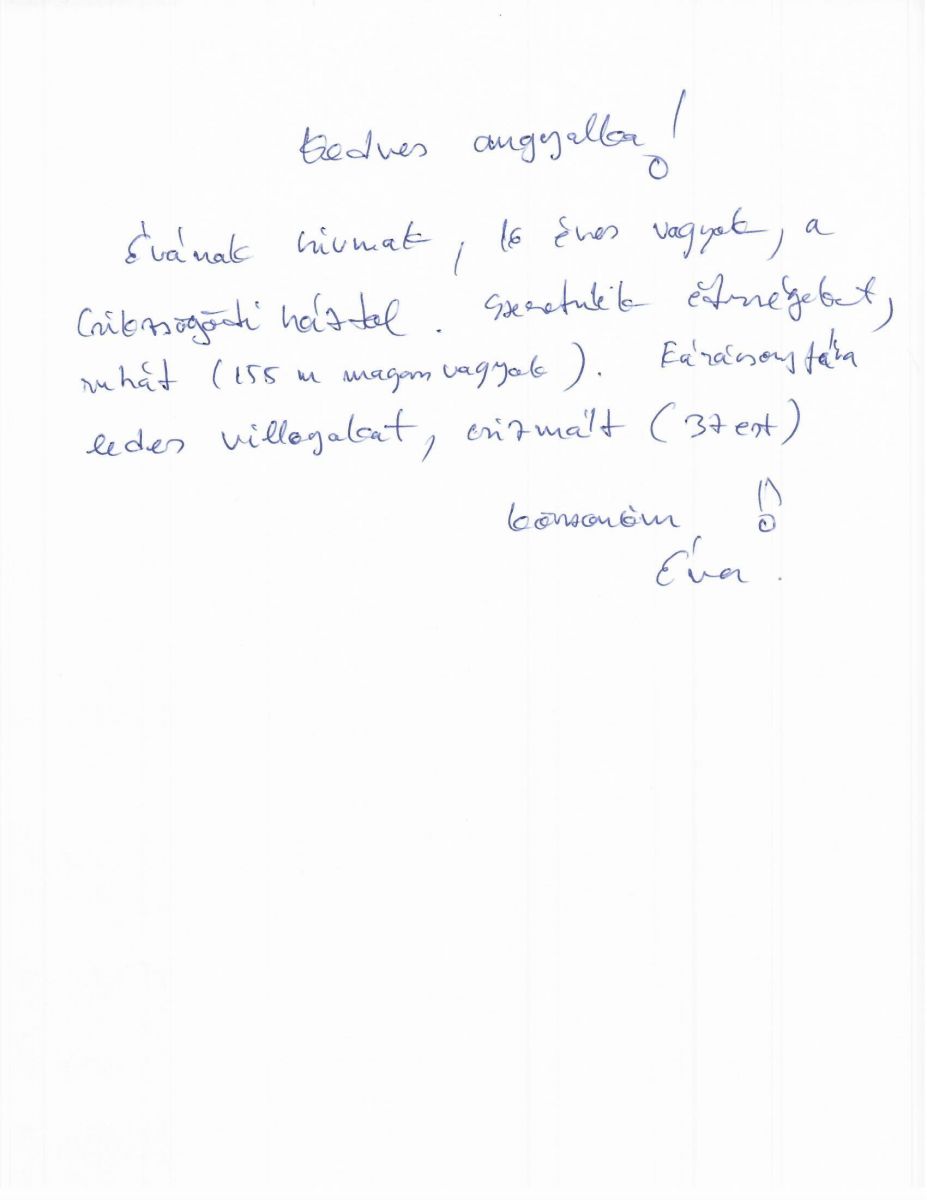 Kedves angyalka!
Évának hivmak, 16 éves vagyok, a
Csikszögödi háztol. Szeretnék édességeket,
ruhát (155 m magam vagyok). Kárácsony fára
ledes villogakat, csizmált (37 est)
Könsonöm !!
Éva.